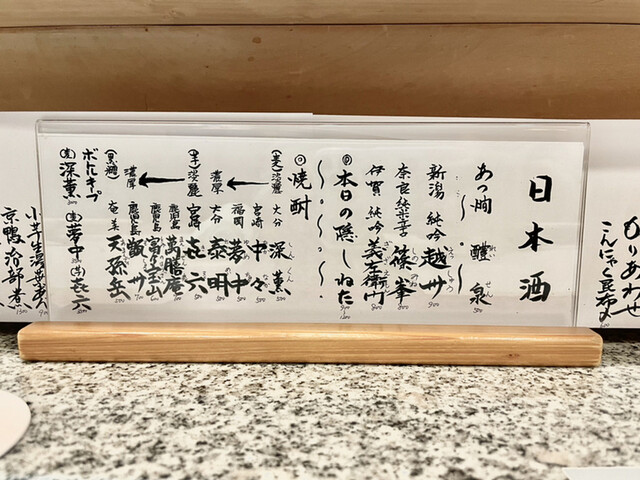 日本酒
あつ燗 醴泉
新潟 純吟 越州
奈良 純米辛 篠峯
伊賀 純吟 義左衛門
本日の隠しねた
焼酎
(麦)淡麗 大分 深薫
宮崎 中々
福岡 夢中
濃厚 大分 泰明
(芋)淡麗 宮崎 㐂六
鹿児島 萬膳庵
鹿児島 富乃宝山
鹿児島 甑州
(黒糖)濃厚 奄美 天孫岳
ボトルキープ
(麦)深薫 (麦)夢中 (芋)㐂六
もりあわせ
こんにゃく昆布〆
京鴨治部煮